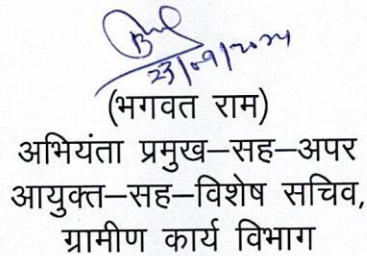 23/09/2024
(भगवत राम)
अभियंता प्रमुख–सह–अपर
आयुक्त–सह–विशेष सचिव,
ग्रामीण कार्य विभाग